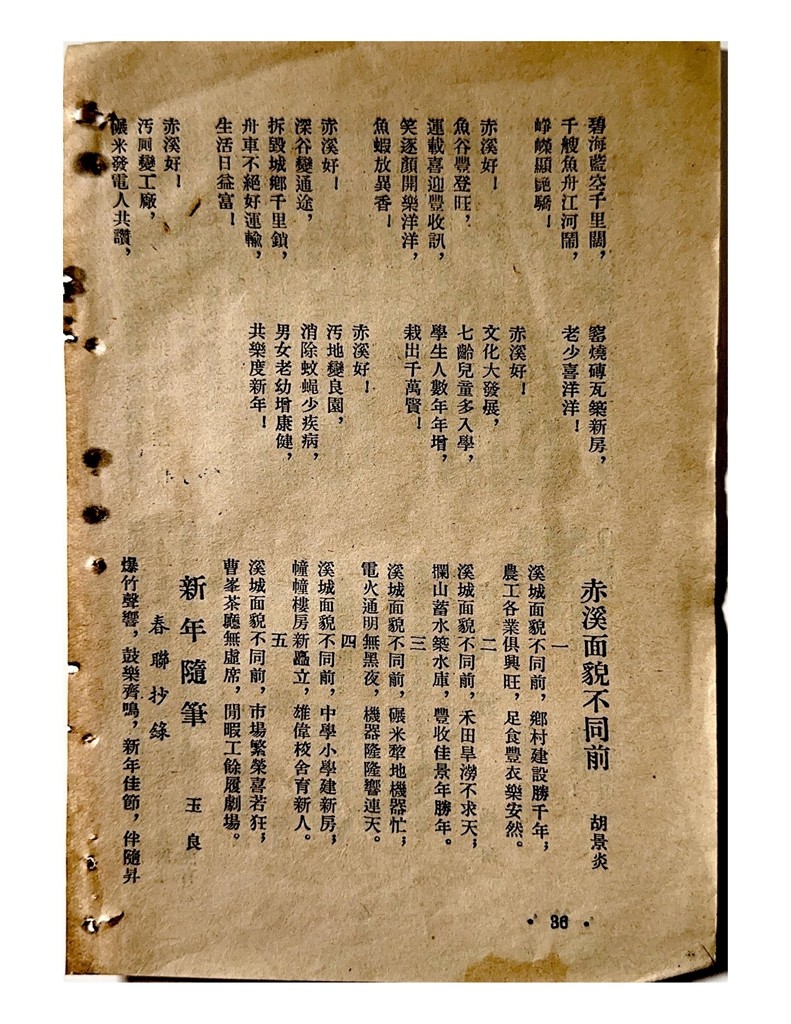 碧海藍空千里闊，
千艘魚舟江河鬧，
崢嶸顯艷驕！
赤溪好！
魚谷豐登旺，
運載喜迎豐收訊，
笑逐顏開樂洋洋，
魚蝦放異香！
赤溪好！
深谷變通途，
拆毀城鄉千里鎖，
舟車不絕好運輸，
生活日益富！
赤溪好！
污厠變工廠，
碾米發電人共讚，
窰燒磚瓦築新房，
老少喜洋洋！
赤溪好！
文化大發展，
七齡兒童多入學，
學生人數年年增，
栽出千萬賢！
赤溪好！
污地變良園，
消除蚊蠅少疾病，
男女老幼增康健，
共樂度新年！
赤溪面貌不同前 胡景炎
一
溪城面貌不同前，鄉村建設勝千年；
農工各業俱興旺，足食豐衣樂安然。
二
溪城面貌不同前，禾田旱澇不求天；
攔山蓄水築水庫，豐收佳景年勝年。
三
溪城面貌不同前，碾米犂地機器忙；
電火通明無黑夜，機器隆隆響連天。
四
溪城面貌不同前，中學小學建新房；
幢幢樓房新矗立，雄偉校舍育新人。
五
溪城面貌不同前，市場繁榮喜若狂；
曹峯茶廳無虛席，閒暇工餘履劇場。
新年隨筆 玉良
春聯抄錄
爆竹聲響，鼓樂齊鳴，新年佳節，伴隨昇
·36·